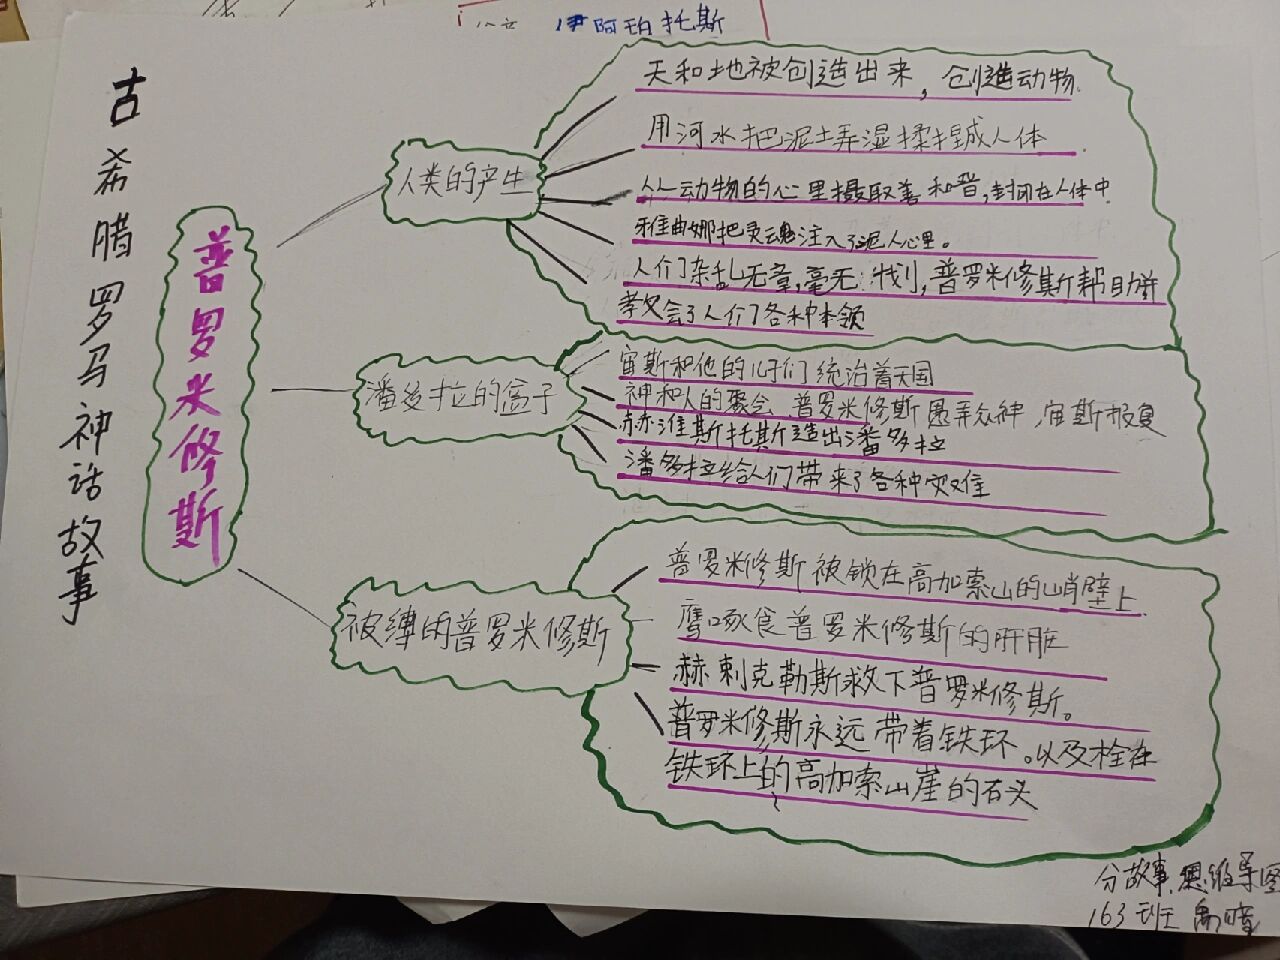 伊阿珀托斯
古希腊罗马神话故事
普罗米修斯
人类的产生
天和地被创造出来，创造动物.
用河水把泥土弄湿揉捏成人体
从动物的心里摄取善和恶,封闭在人体中.
雅典娜把灵魂注入了泥人心里。
人们杂乱无章,毫无计划,普罗米修斯帮助并
教会了人们各种本领
潘多拉的盒子
宙斯和他的儿子们统治着天国
神和人的聚会 普罗米修斯愚弄众神,宙斯报复
赫淮斯托斯造出潘多拉
潘多拉给人们带来了各种灾难
被缚的普罗米修斯
普罗米修斯被锁在高加索山的峭壁上.
鹰啄食普罗米修斯的肝脏
赫剌克勒斯救下普罗米修斯。
普罗米修斯永远带着铁环。以及栓在
铁环上的高加索山崖的石头
分故事思维导图
163班